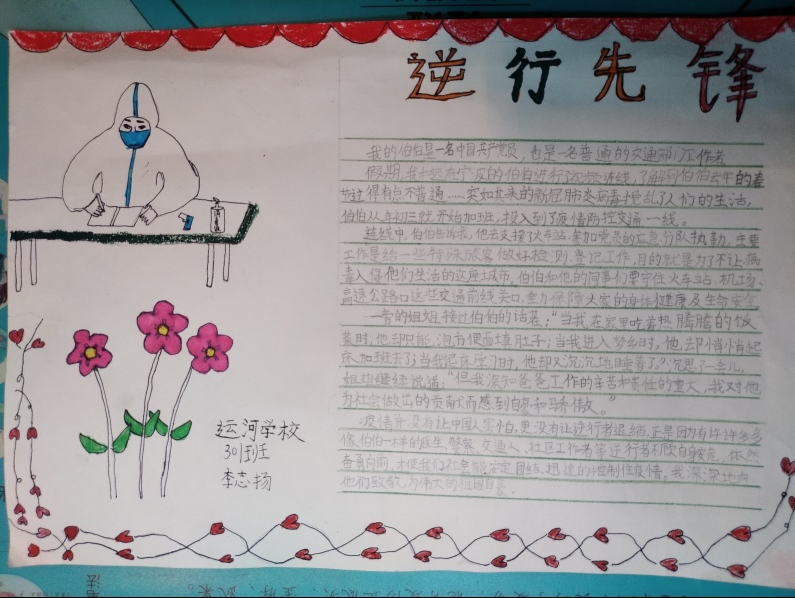 逆行先锋
我的伯伯是一名中国共产党员，也是一名普通的交通部门工作者
假期，我和远在宁波的伯伯进行了视频连线，了解到伯伯去年的春
节过得有点不普通……突如其来的新冠肺炎病毒搅乱了人们的生活，
伯伯从年初三就开始加班，投入到了疫情防控交通一线。
连线中，伯伯告诉我，他去支援了火车站，参加党员的应急分队执勤，主要
工作是给一些特殊旅客做好检测、登记工作，目的就是为了不让病
毒入侵他们生活的这座城市。伯伯和他的同事们要守住火车站、机场、
高速公路口这些交通前线关口，全力保障大家的身体健康及生命安全
一旁的姐姐接过伯伯的话茬："当我在家里吃着热腾腾的饭
菜时，他却只能泡方便面填肚子；当我进入梦乡时，他却悄悄起
床加班去了；当我起床学习时，他却又沉沉地睡着了。"沉思了一会儿，
姐姐继续说道："但我深知爸爸工作的辛苦和责任的重大，我对他
为社会做出的贡献而感到自豪和骄傲。"
疫情并没有让中国人害怕，更没有让逆行者退缩，正是因为有许许多多
像伯伯一样的医生、警察、交通人、社区工作者等逆行者不顾自身安危，依然
奋勇向前，才使我们社会能安定团结，迅速的控制住疫情。我深深地向
他们致敬，为伟大的祖国自豪。
运河学校
301班
李志扬